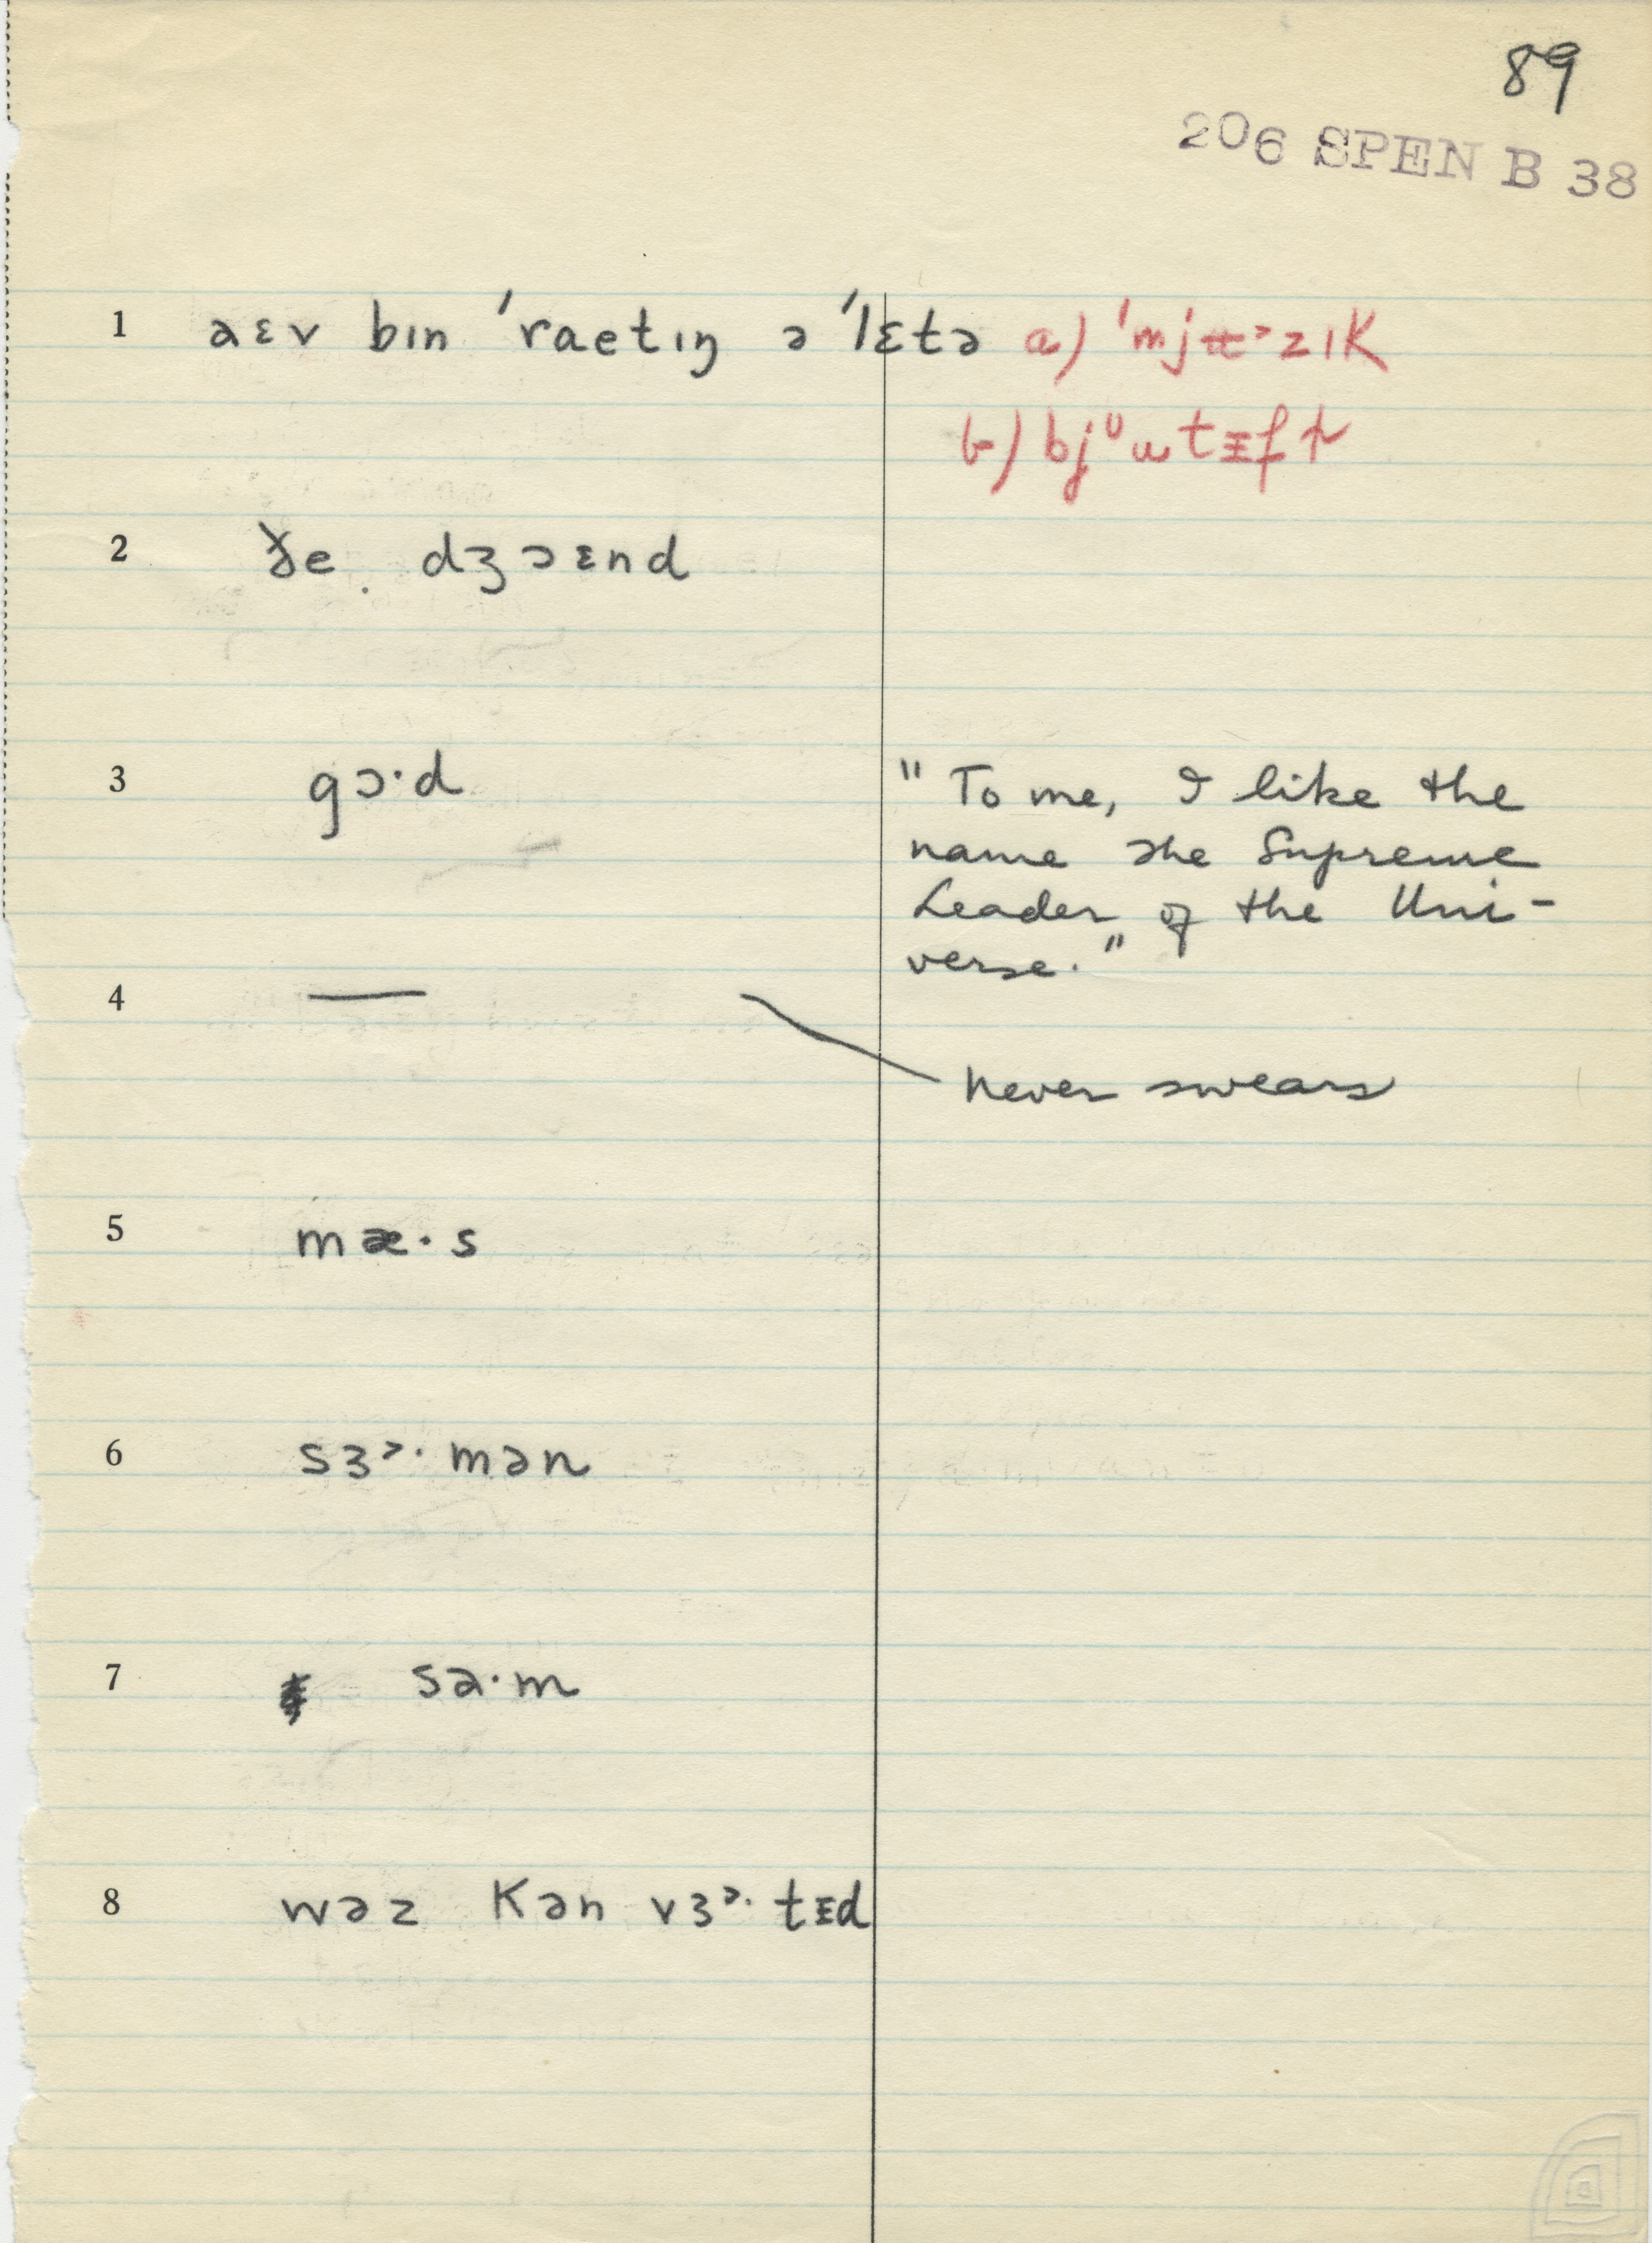 89
206 SPEN B 38
1 aɛv bɪn ˈraetɪŋ ə ˈlɛtə a) ˈmjʉᵊzɪK
b) bjᵁu tᵻf
2 ðe dʒɔɛnd
3 gɔ·d
"To me, I like the
name the Supreme
Leader of the Uni-
verse."
4 —
never swears
5 mæ·s
6 sɜᵊ· mən
7 sa·m
8 wəz Kən vɜᵊ· tᵻd